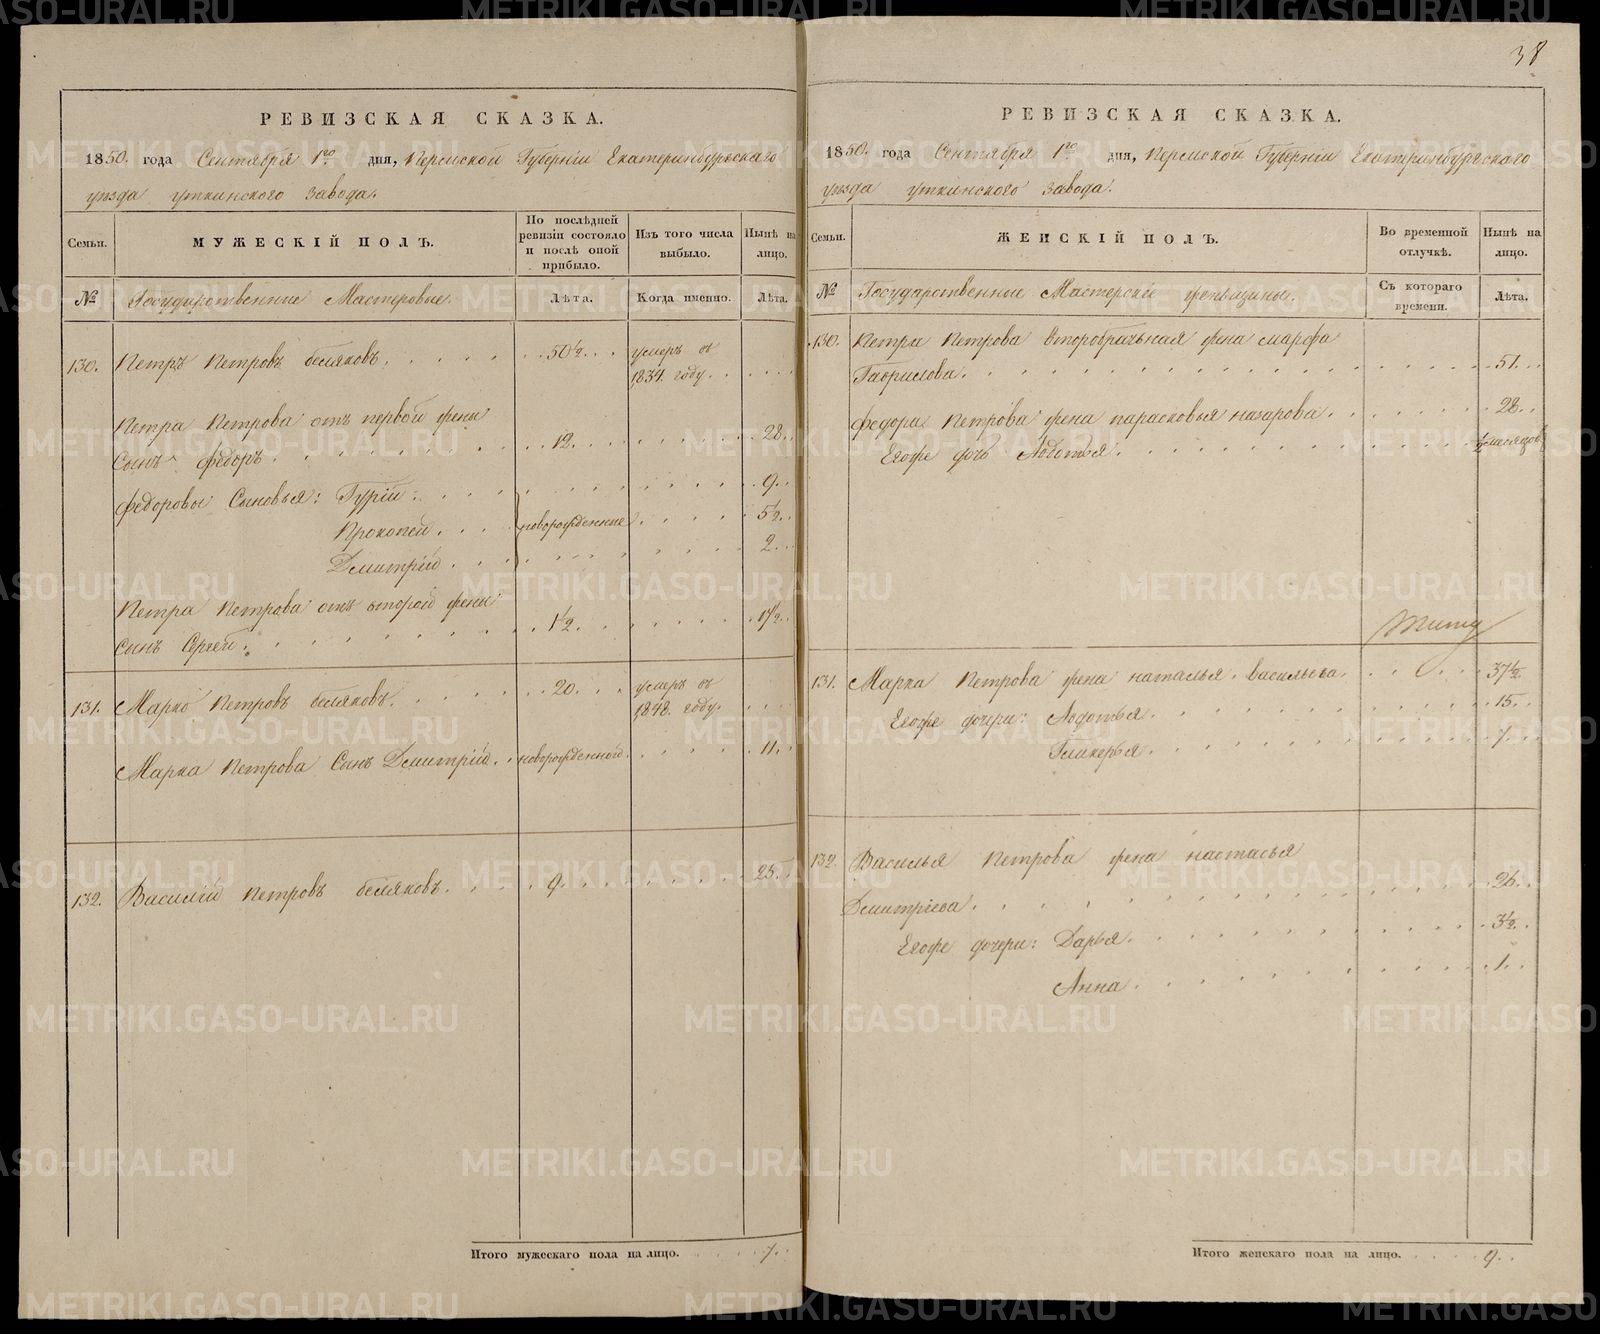 38
РЕВИЗСКАЯ СКАЗКА.
1850. года Сентября 1го дня, Пермской Губерніи Екатеринбургскаго
уѣзда уткинского завода.
Семьи.
МУЖЕСКІЙ ПОЛЪ.
По послѣдней ревизіи состояло и послѣ оной прибыло.
Изъ того числа выбыло.
Нынѣ на лицо.
№
Государственные Мастеровые.
Лѣта.
Когда именно.
Лѣта.
130. Петръ Петровъ беляковъ. 50½. умеръ въ
1834. году.
Петра Петрова отъ первой жены
Сынъ федоръ. 12. 28.
федоровы Сыновья: Гурій. 9.
Прокопей. новорожденные 5½.
Дмитрій. 2.
Петра Петрова отъ второй жены
сынъ Сергей. 1½. 17½.
131. Марко Петровъ беляковъ. 20. умеръ въ
1848. году.
Марка Петрова Сынъ Дмитрій. новорожденной. 11.
132. Василій Петровъ беляковъ. 9. 25.
Итого мужескаго пола на лицо. 7.
РЕВИЗСКАЯ СКАЗКА.
1850. года Сентября 1го дня, Пермской Губерніи Екатеринбургскаго
уѣзда уткинского завода.
Семьи.
ЖЕНСКІЙ ПОЛЪ.
Во временной отлучкѣ.
Нынѣ на лицо.
№
Государственные Мастерскіе женщины.
Съ котораго времени.
Лѣта.
130. Петра Петрова второбрачьная жена марфа
Гаврилова. 51.
федора Петрова жена парасковья назарова. 28.
Егоже дочь Авдотья. ½ месяцов
131. Марка Петрова жена наталья васильева. 37½.
Егоже дочери: Авдотья. 15.
Гликерья. 7.
132. Василья Петрова жена настасья
Дмитріева. 26.
Егоже дочери: Дарья. 3½.
Анна. 1.
Итого женскаго пола на лицо. 9.
METRIKI.GASO-URAL.RU